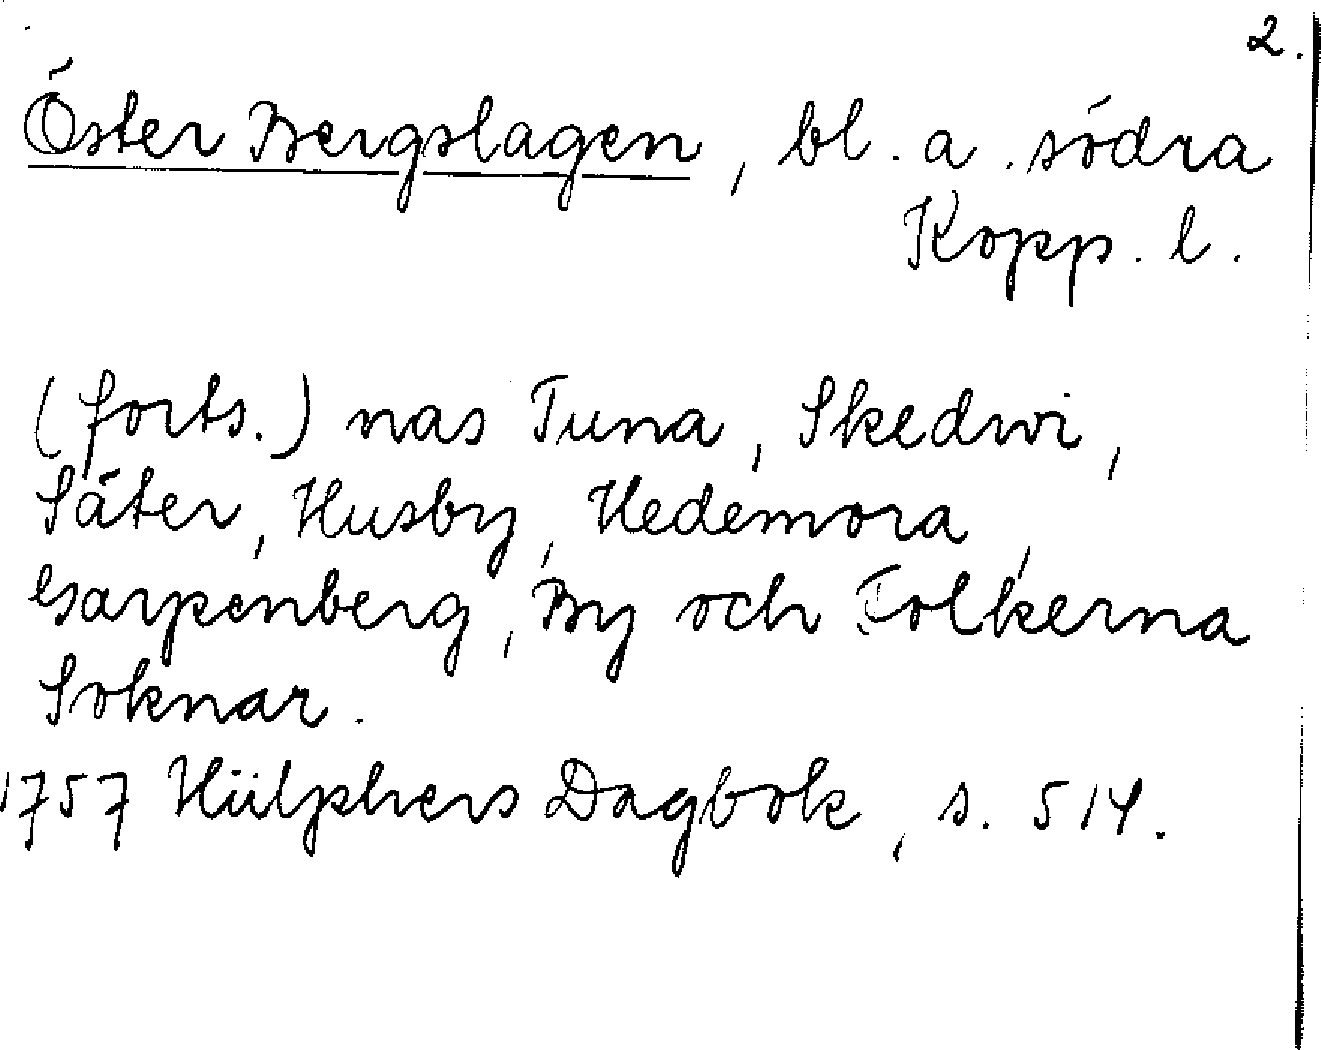 2.
Öster Bergslagen, bl. a. södra
Kopp. l.
(forts.) nas Tuna, Skedwi,
Säter, Husby, Hedemora,
Garpenberg, By och Folkerna
Soknar.
1757 Hülphers Dagbok, s. 514.